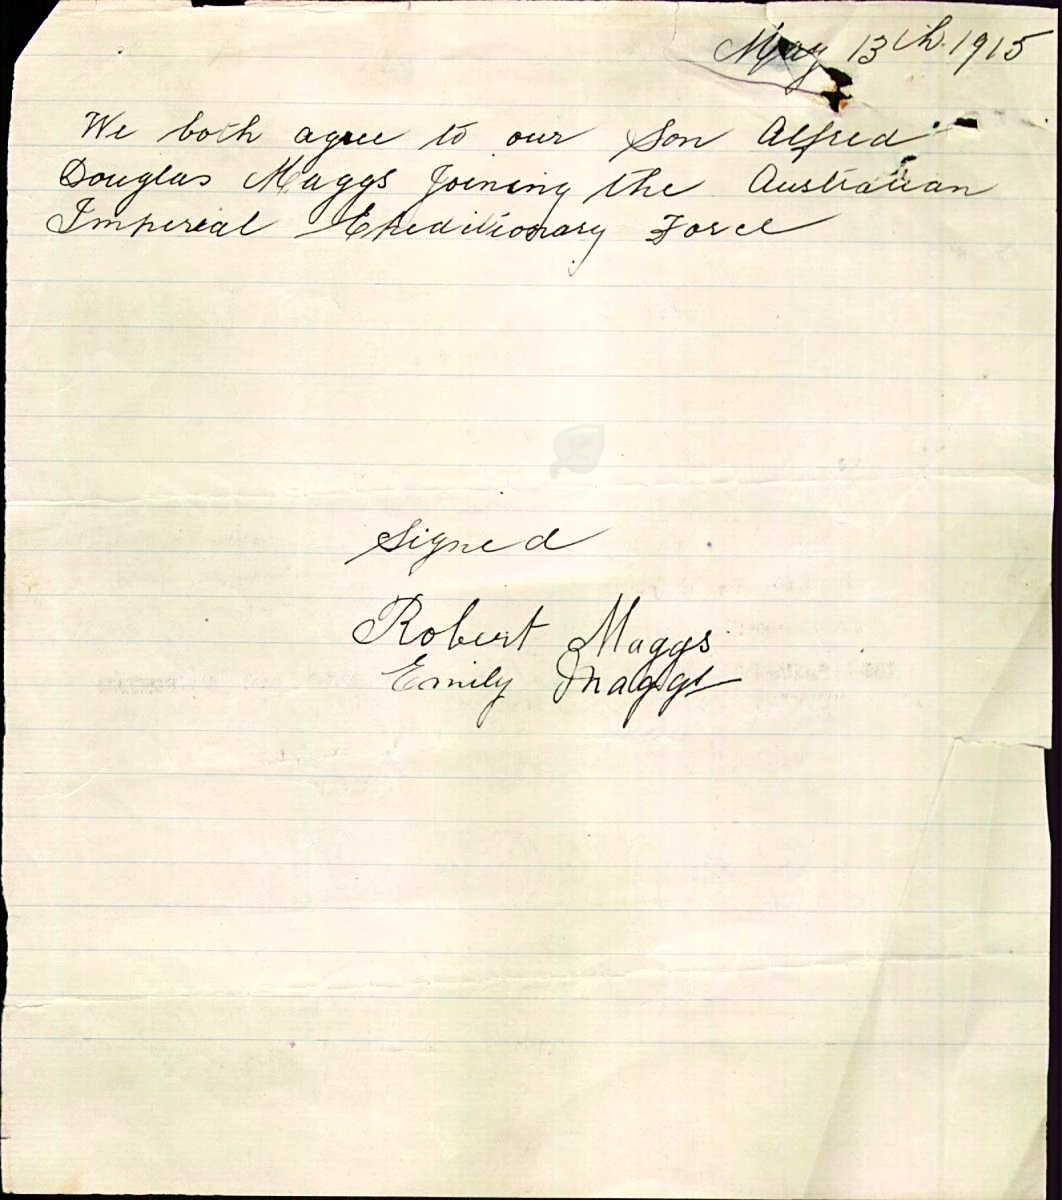 May 13th. 1915
We both agree to our Son Alfred
Douglas Maggs Joining the Australian
Imperial Expeditionary Force
Signed
Robert Maggs
Emily Maggs